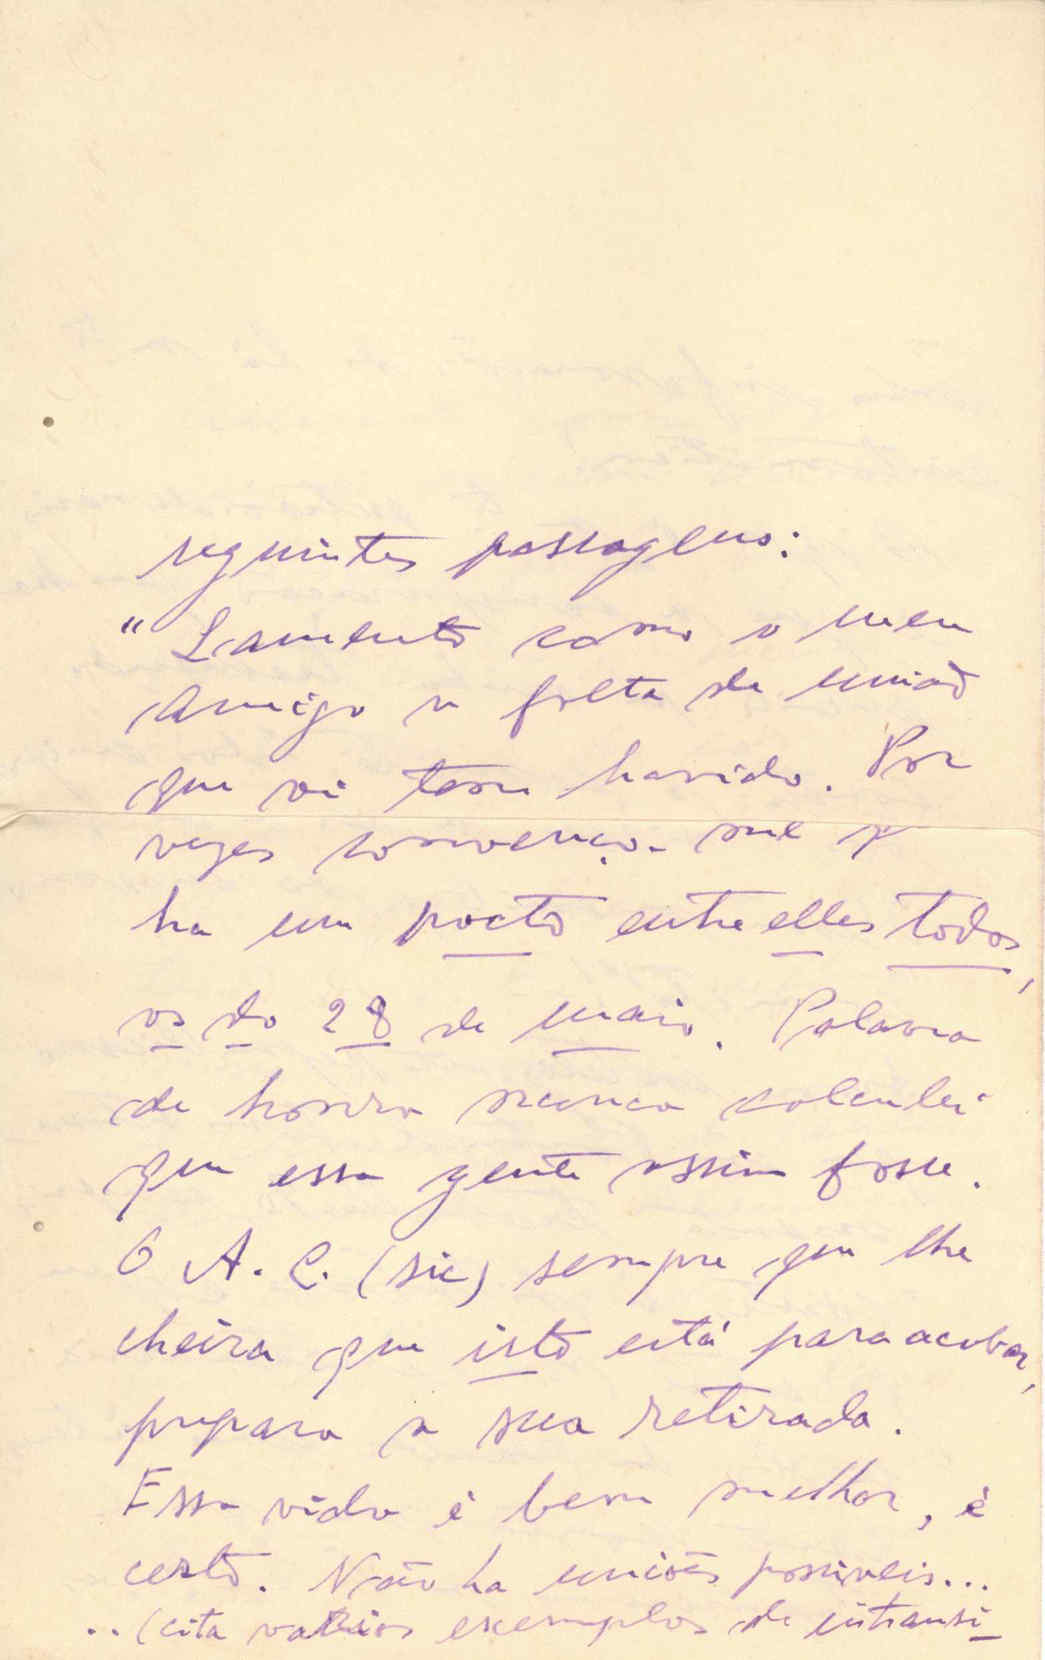 seguintes passagens:
"Lamento como o meu
Amigo a falta de união
que vi tem havido. Por
vezes convenço-me q
ha um pacto entre elles todos,
os do 28 de maio. Palavra
de honra nunca calculei
que essa gente assim fosse.
O A. C. (sic) sempre que lhe
cheira que isto está para acabar,
prepara a sua retirada.
Essa vida é bem melhor, é
certo. Não ha uniões possiveis...
..(cita varios exemplos de intransi-